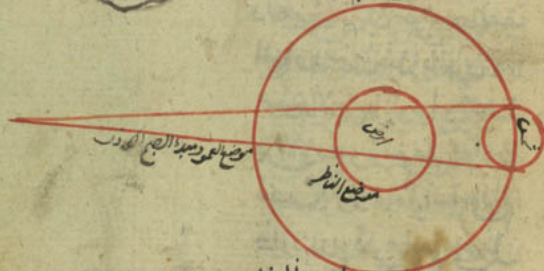 شمس
ارض
موضع الناظر
موضع العمود مبدا الصبح الكاذب